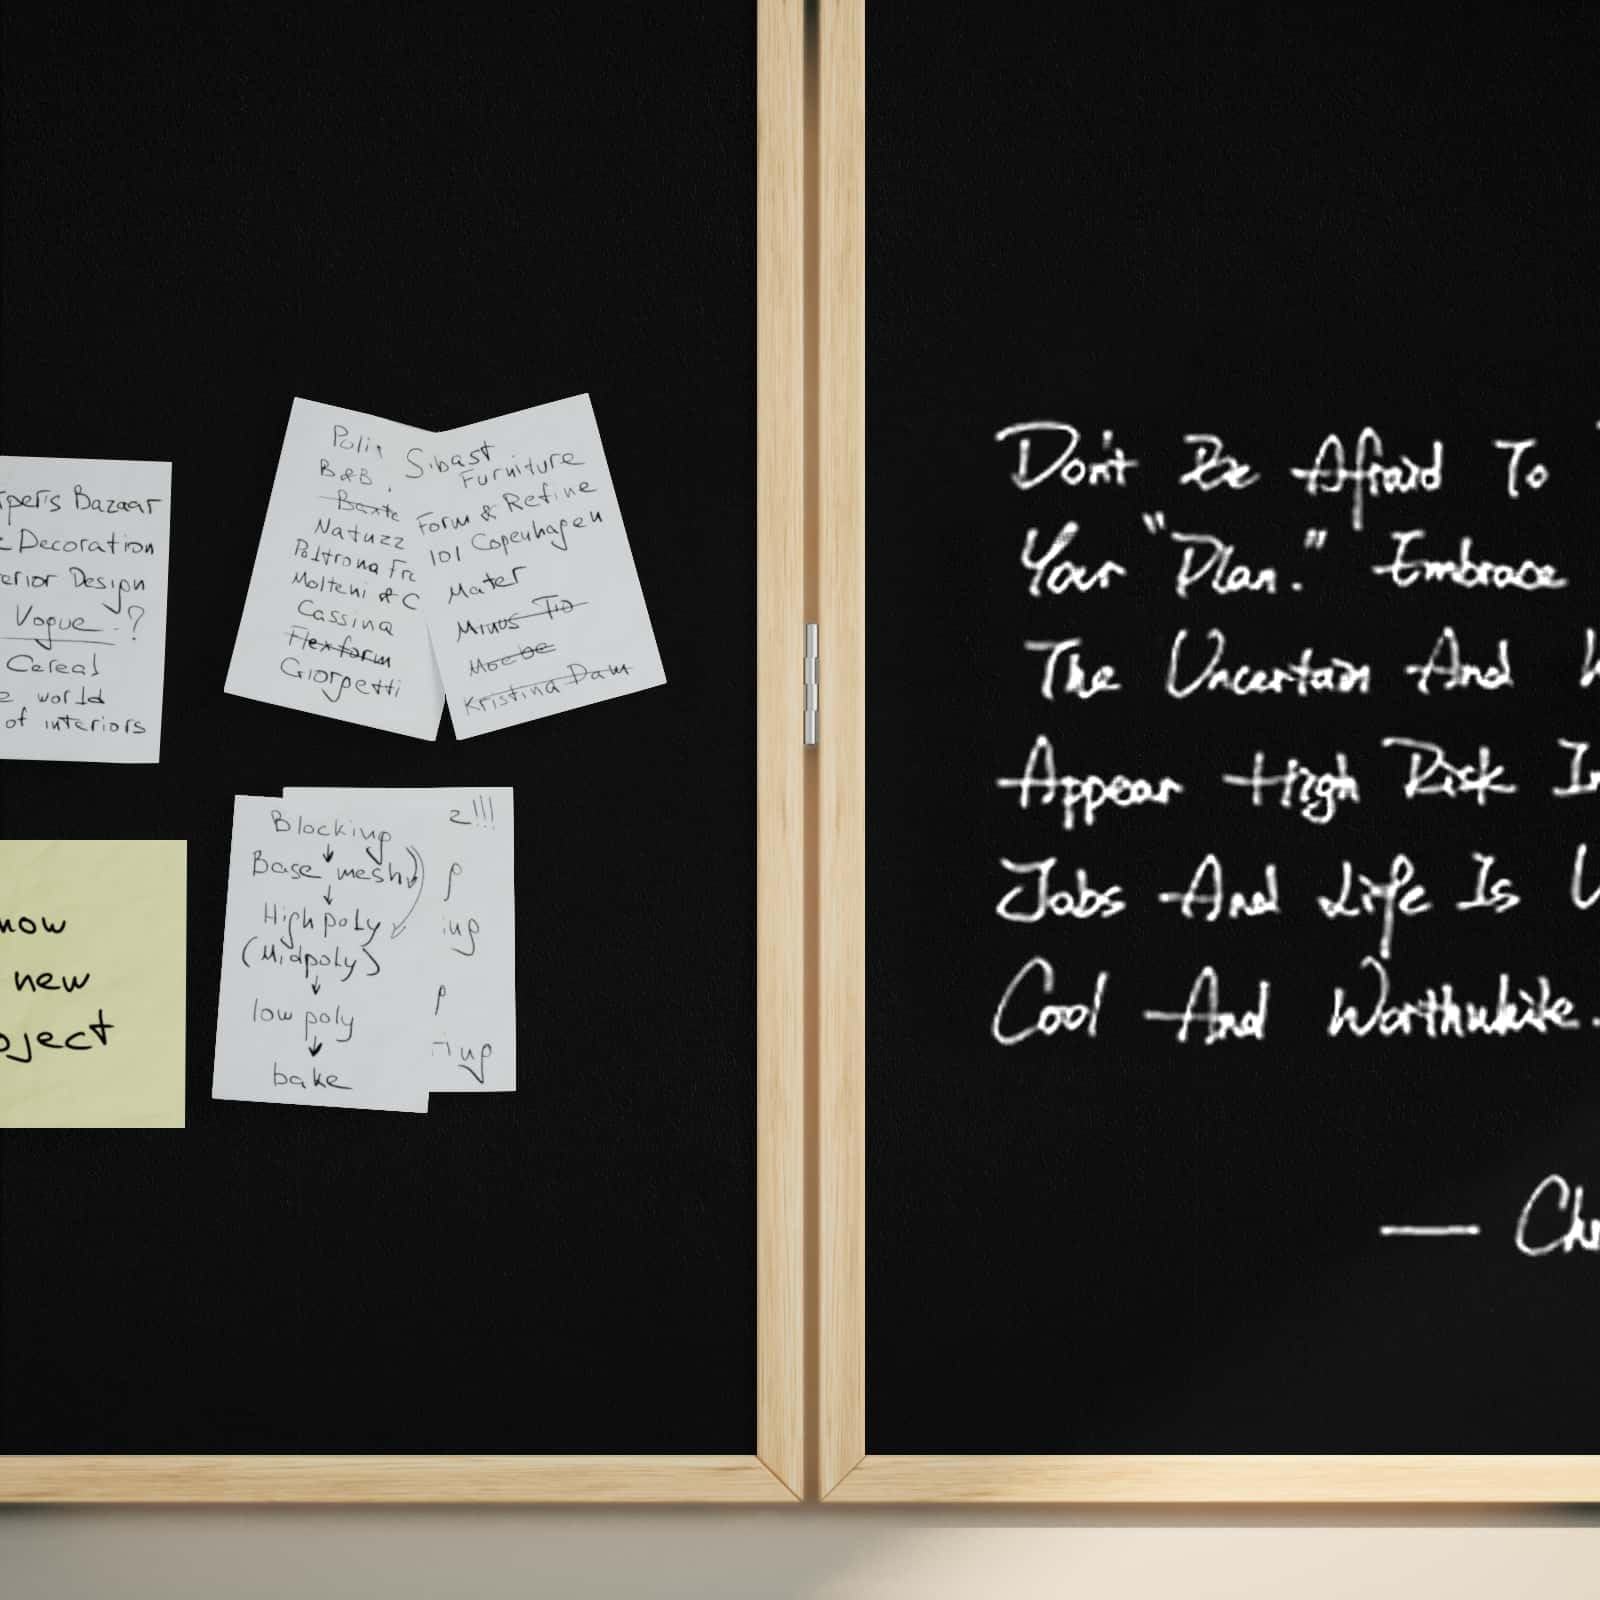 Bazaar
Decoration
Design
Vogue ?
Cereal
world
of interiors
B&B
Natuzz
Poltrona Fr
Molteni & C
Cassina
Flexform
Giorgetti
Sibast
Furniture
Form & Refine
101 Copenhagen
Mater
Minus Tio
Moebe
Kristina Dam
new
Blocking
Base mesh
High poly
(Midpoly)
low poly
bake
Don't Be Afraid To
Your "Plan." Embrace
The Uncertain And
Appear High Risk In
Jobs And Life Is
Cool And Worthwhile.
—